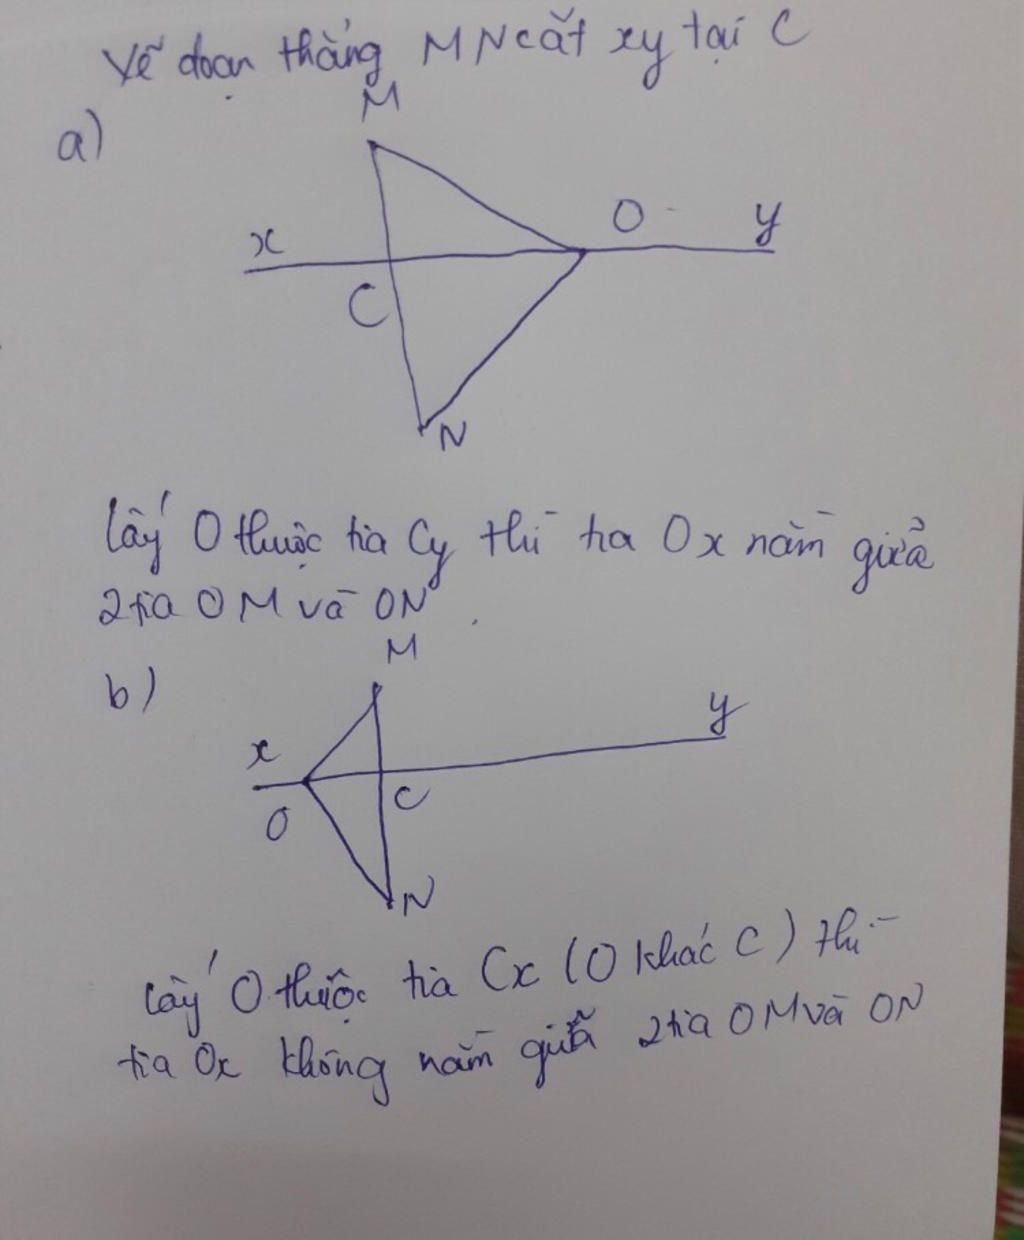 Vẽ đoạn thẳng MN cắt xy tại C
a)
M
x
O
y
C
N
Lấy O thuộc tia Cy thì tia Ox nằm giữa
2 tia OM và ON.
b)
M
x
y
O
C
N
Lấy O thuộc tia Cx (O khác C) thì
tia Ox không nằm giữa 2 tia OM và ON